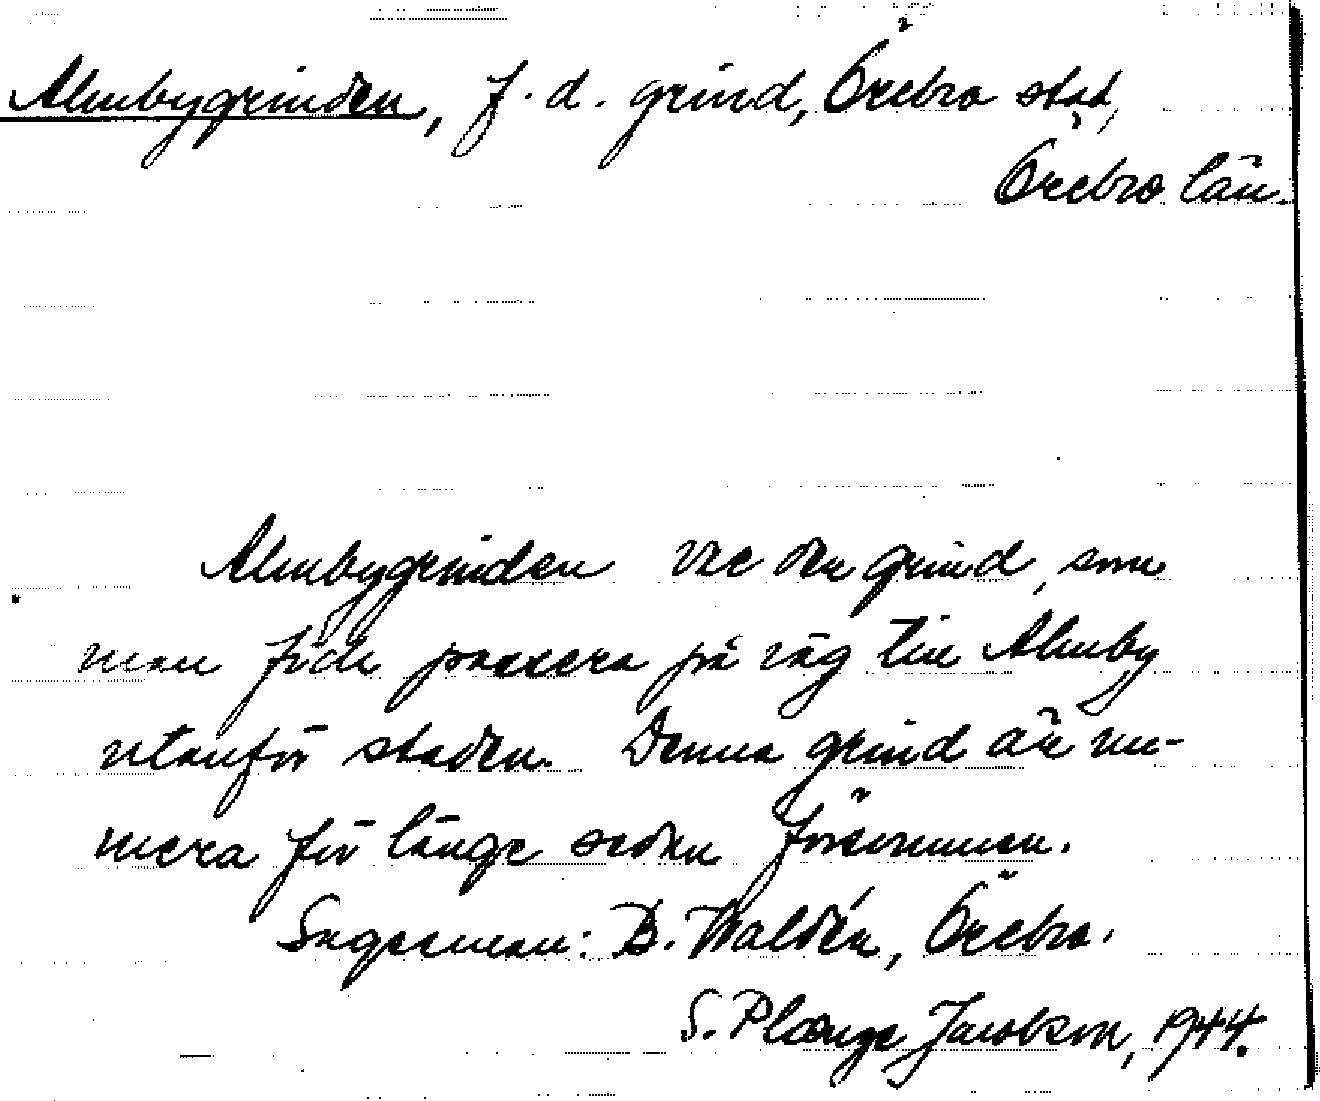 Almbygrinden, f. d. grind, Örebro stad,
Örebro län.
Almbygrinden var den grind, som
man fick passera på väg till Almby
utanför staden. Denna grind är nu-
mera för länge sedan försvunnen.
Sagesman: B. Waldén, Örebro.
S. Plænge Jacobson, 1944.